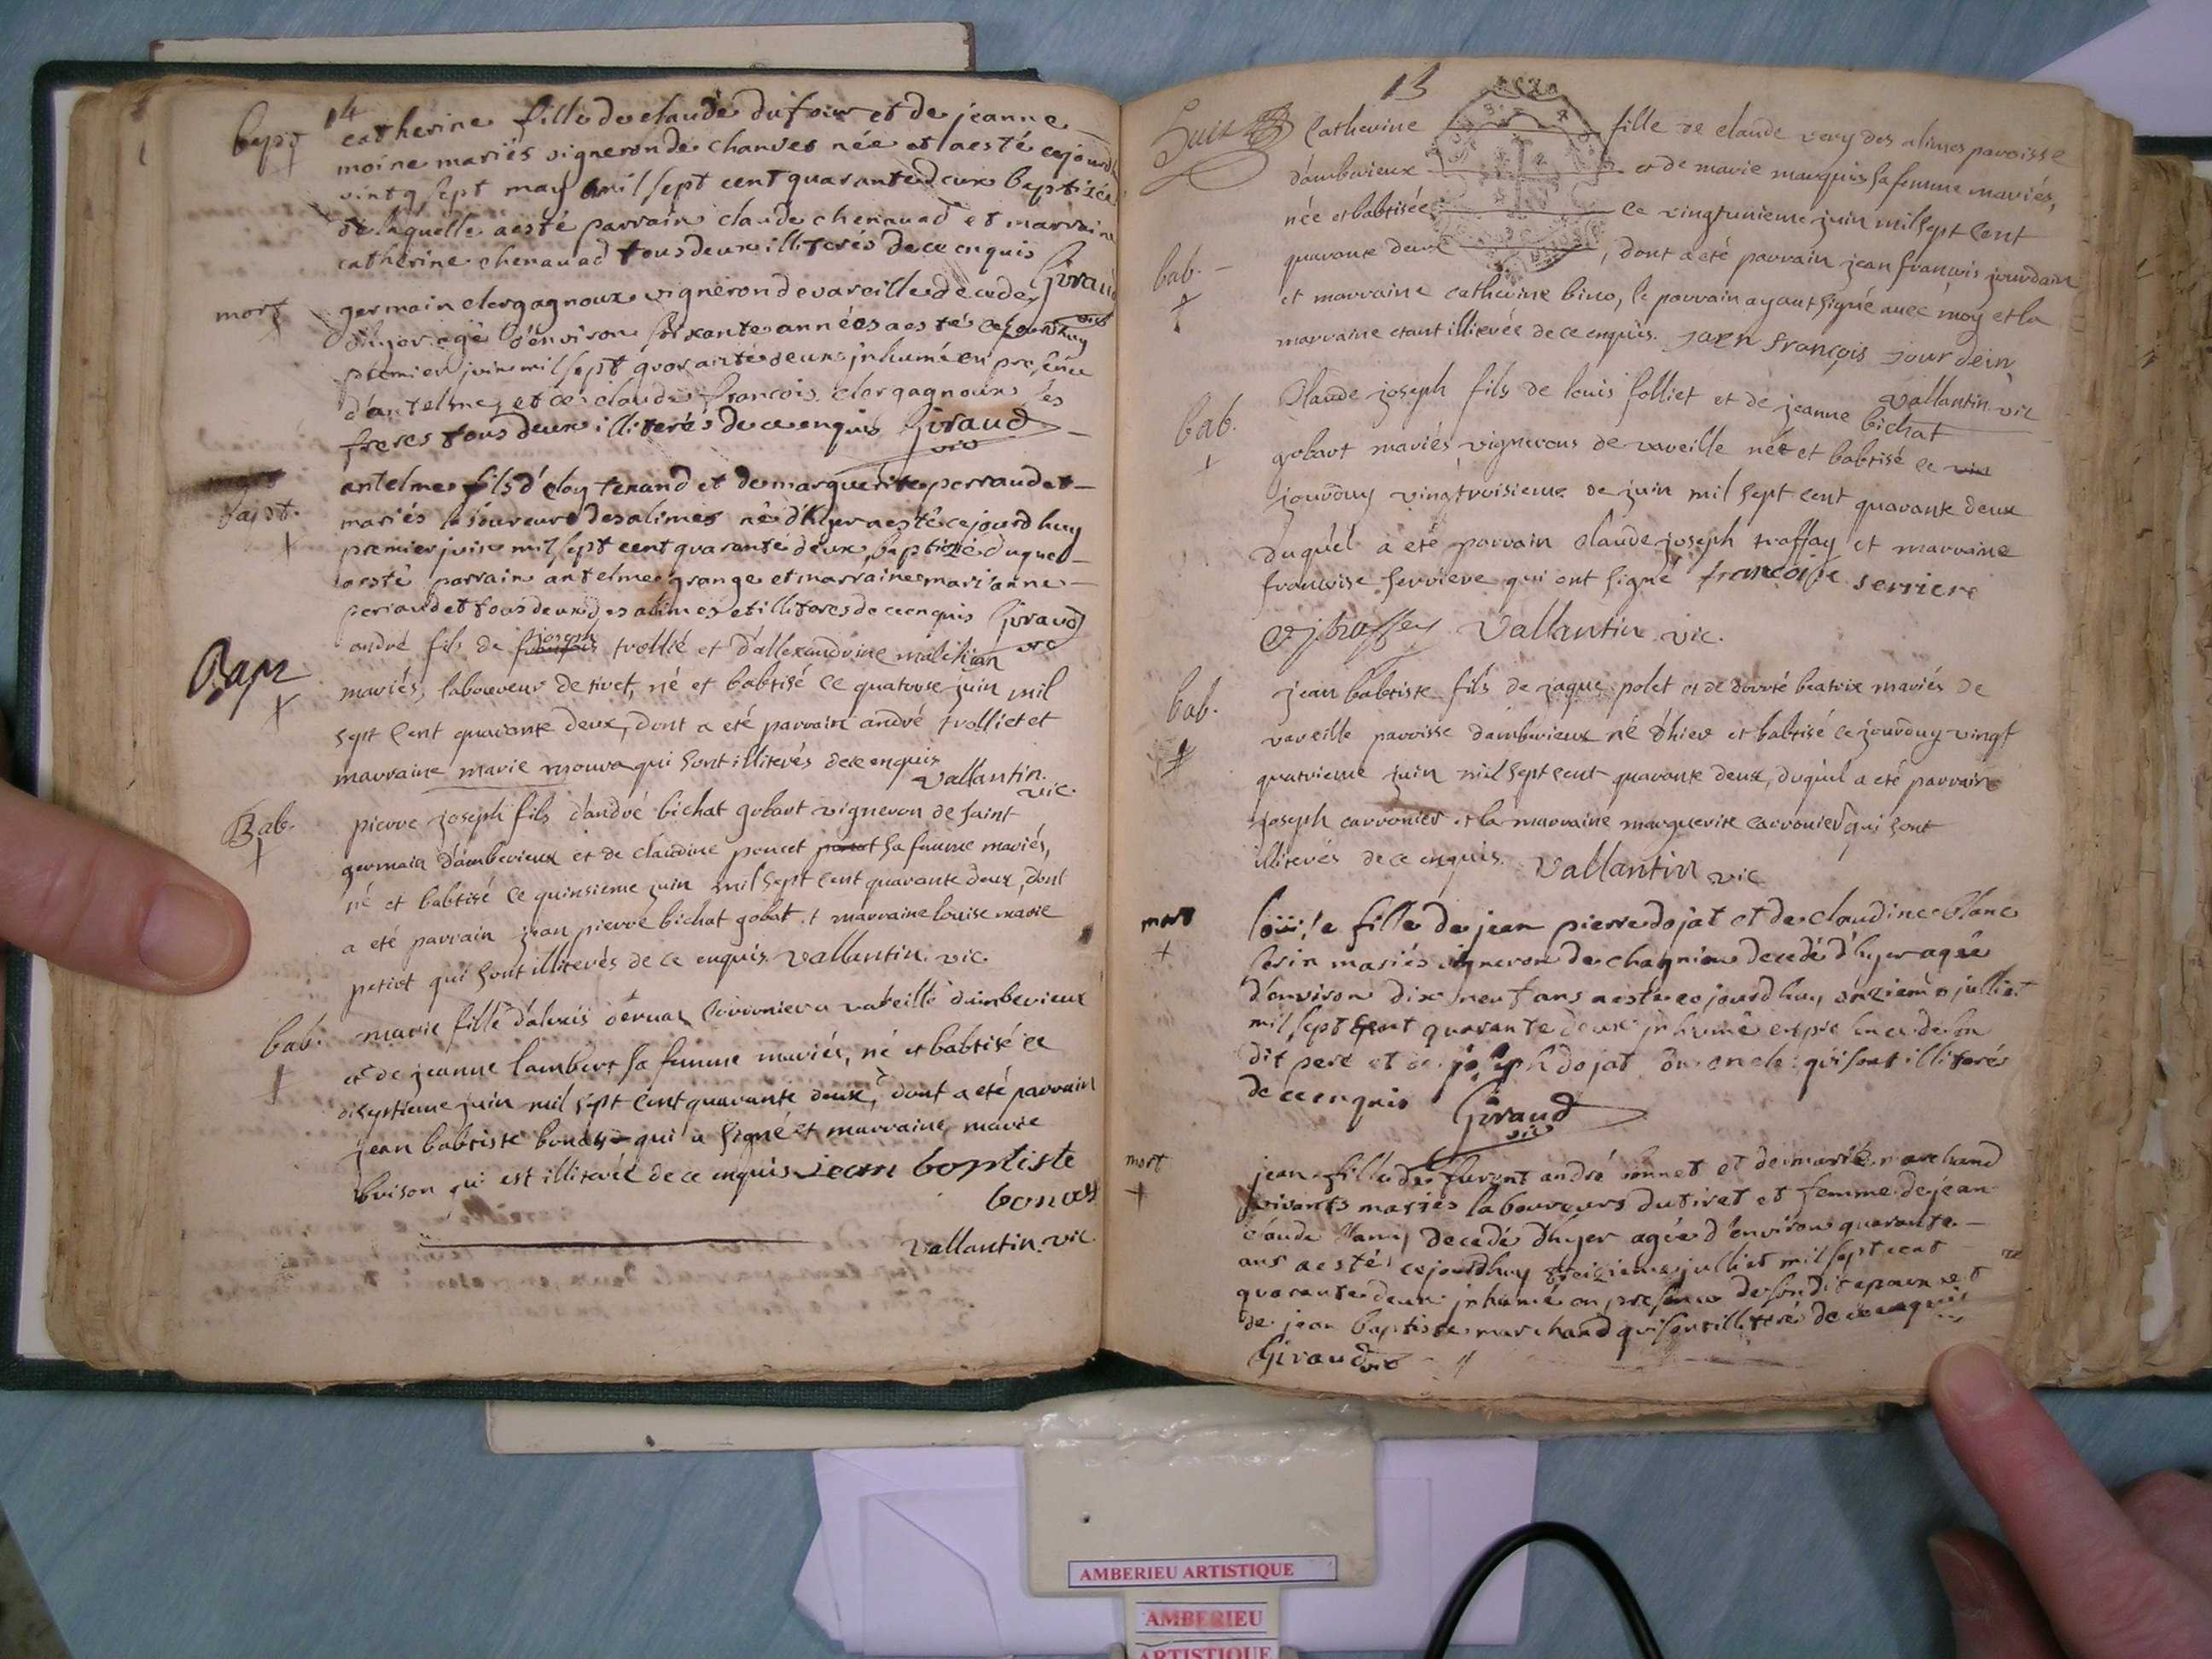 14
bapt catherine fille de claude dufour et de jeanne
moine mariés vigneron de chanves née et a esté cejourd
vintg sept may mil sept cent quarante deux baptisée
de laquelle a esté parrain claude chenavad et marraine
catherine chenavad tous deux illiterés de ce enquis
Giraud
vic
mort germain clergagnoux vigneron de vareille decedez
d'hyer agé d'environ soixante années a esté cejourdhuy
premier juin mil sept quarante deux inhumé en presence
d'antelme et de claude françois clergagnoux ses
freres tous deux illiterés de ce enquis Giraud
vic
antelme fils d'eloy tenand et de marguerite perraudet
bapt. mariés laboureurs des alimes né d'hyer a esté cejourdhuy
premier juin mil sept cent quarante deux baptisé duquel
a esté parrain antelme grange et marraine marianne
perraudet tous deux des alimes et illiteres de ce enquis Giraud
vic
joseph
Bap andré fils de trollié et d'allexandrine
mariés, laboureur de tiret, né et babtisé ce quatorse juin mil
sept cent quarante deux, dont a eté parrain andré trolliet et
marraine marie qui sont illiterés de ce enquis
Vallantin.
vic.
Bab. pierre joseph fils d'andré bichat gobart vigneron de saint
germain d'amberieux et de claudine poncet sa femme mariés,
né et babtisé ce quinsieme juin mil sept cent quarante deux, dont
a eté parrain jean pierre bichat gobat et marraine louise marie
petiot qui sont illiterés de ce enquis. Vallantin. vic.
bab. marie fille d'alexis a vareille d'amberieux
et de jeanne lambert sa femme mariés, né et babtisé ce
diseptieme juin mil sept cent quarante deux, dont a eté parrain
jean babtiste qui a signé et marraine marie
buison qui est illiterée de ce enquis jean boptiste
bonard
Vallantin. vic.
13
Catherine fille de claude very des alimes paroisse
d'amberieux et de marie marquis sa femme mariés,
née et babtisée ce vingtunieme juin mil sept cent
bab. quarante deux, dont a eté parrain jean francois jourdain
et marraine catherine bino, le parrain ayant signé avec moy et la
marraine etant illiterée de ce enquis. jaen françois jour dein
Vallantin vic
bab. Claude joseph fils de louis folliet et de jeanne bichat
gobart mariés, vignerons de vareille né et babtisé ce
jourduy vingtroisieme de juin mil sept cent quarante deux
duquel a eté parrain Claude joseph traffay et marraine
francoise serriere qui ont signé francoise serriere
Vallantin. vic.
bab. jean babtiste fils de jaque polet et de beatrix mariés de
vareille paroisse d'amberieux né d'hier et babtisé ce jourduy vingt
quatrieme juin mil sept cent quarante deux, duquel a eté parrain
joseph carronier et la marraine marguerite carronier qui sont
illiterés de ce enquis. Vallantin vic
mort louise fille de jean pierre dojat et de claudine blanc
mariés vigneron de decedé d'hyer agée
d'environ dix neuf ans a esté cejourdhuy onzieme julliet
mil sept cent quarante deux inhumé en presence de son
dit pere et de joseph dojat son oncle qui sont illiterés
de ce enquis Giraud
vic
mort jean fille de furent andré bonnet et de marie marchand
vivants mariés laboureurs du tiret et femme de jean
claude decedé d'hyer agée d'environ quarante
ans a esté cejourdhuy treizieme julliet mil sept cent
quarante deux inhumé en presence de son dit epoux et
de jean baptiste marchand qui sont illiteré de ce enquis
Giraud vic
AMBERIEU ARTISTIQUE
AMBERIEU
ARTISTIQUE